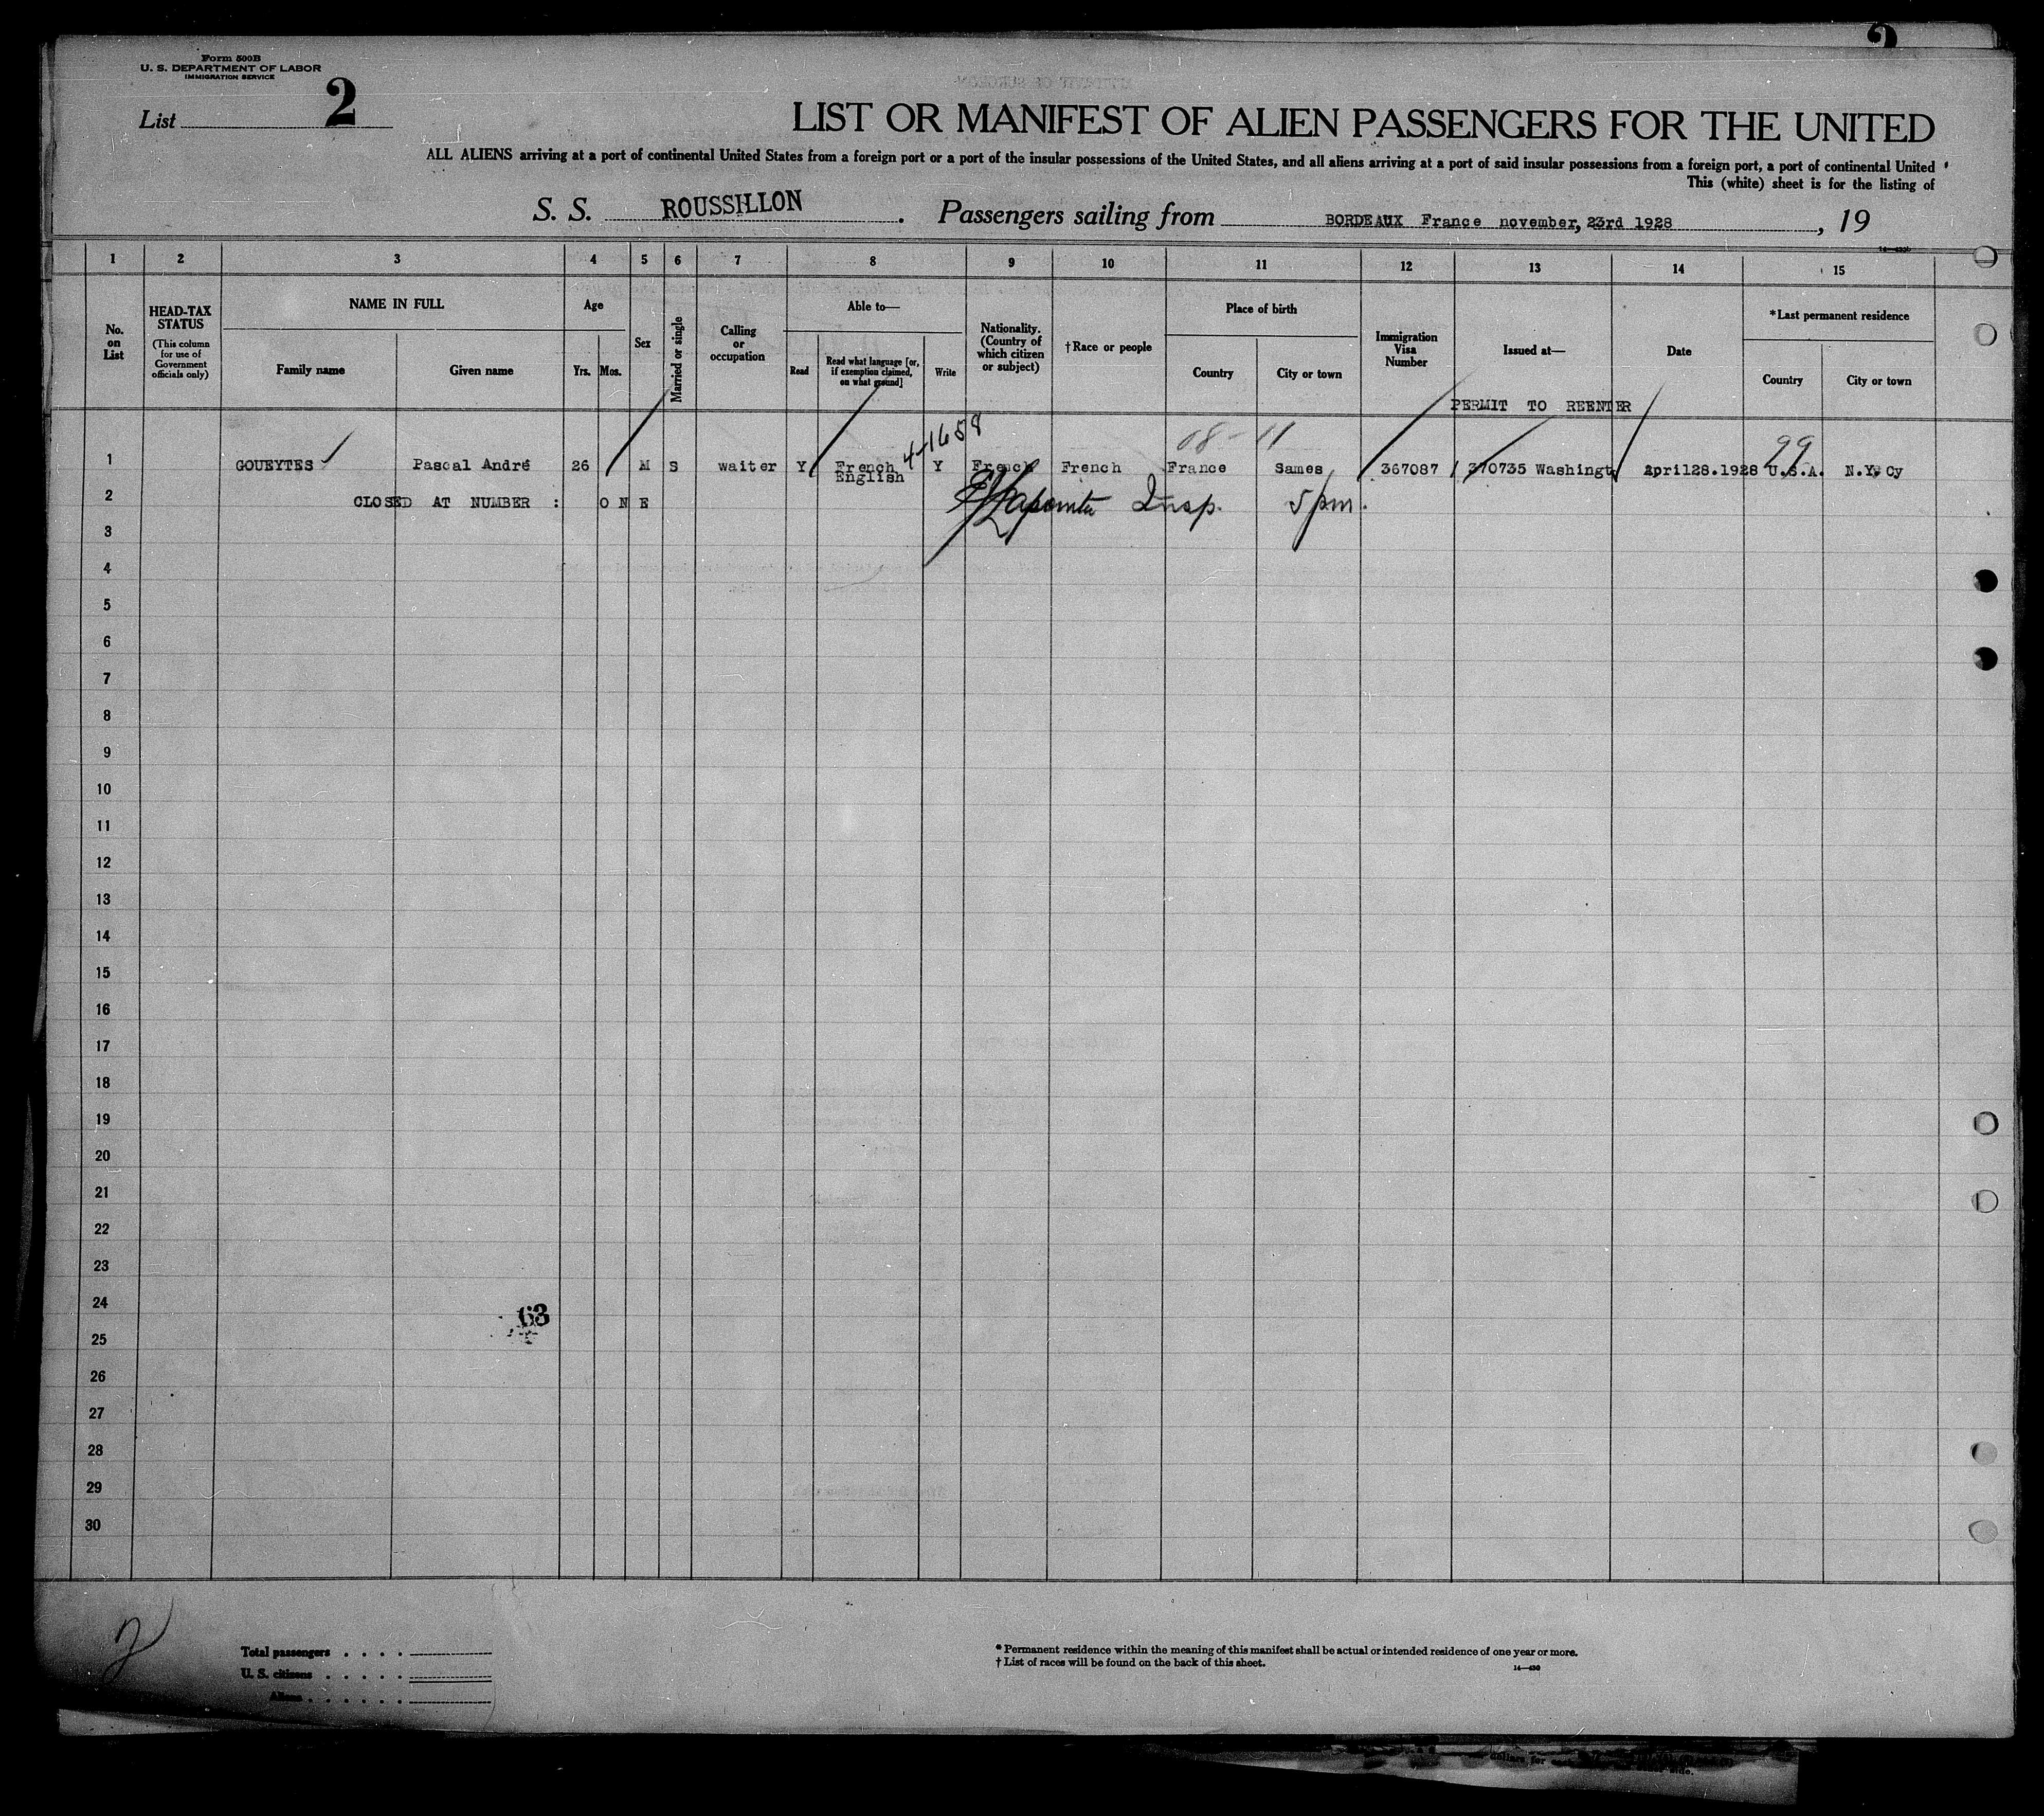 Form 500B
U. S. DEPARTMENT OF LABOR
IMMIGRATION SERVICE
List 2
LIST OR MANIFEST OF ALIEN PASSENGERS FOR THE UNITED
ALL ALIENS arriving at a port of continental United States from a foreign port or a port of the insular possessions of the United States, and all aliens arriving at a port of said insular possessions from a foreign port, a port of continental United
This (white) sheet is for the listing of
S. S. ROUSSILLON. Passengers sailing from BORDEAUX France november, 23rd 1928, 19
1 2 3 4 5 6 7 8 9 10 11 12 13 14 15
No. on List
HEAD-TAX STATUS
(This column for use of Government officials only)
NAME IN FULL
Family name
Given name
Age
Yrs. Mos.
Sex
Married or single
Calling or occupation
Able to—
Read
Read what language [or, if exemption claimed, on what ground]
Write
Nationality. (Country of which citizen or subject)
†Race or people
Place of birth
Country
City or town
Immigration Visa Number
Issued at—
Date
*Last permanent residence
Country
City or town
PERMIT TO REENTER
4-1658
08-11
99
1 GOUEYTES Pascal André 26 M S waiter Y French Y French French France Sames 367087 370735 Washingt April28.1928 U.S.A. N.Y. Cy
English
2 CLOSED AT NUMBER : O N E
Insp. 5 pm.
3
4
5
6
7
8
9
10
11
12
13
14
15
16
17
18
19
20
21
22
23
24
63
25
26
27
28
29
30
2
Total passengers
U. S. citizens
Aliens
* Permanent residence within the meaning of this manifest shall be actual or intended residence of one year or more.
† List of races will be found on the back of this sheet.